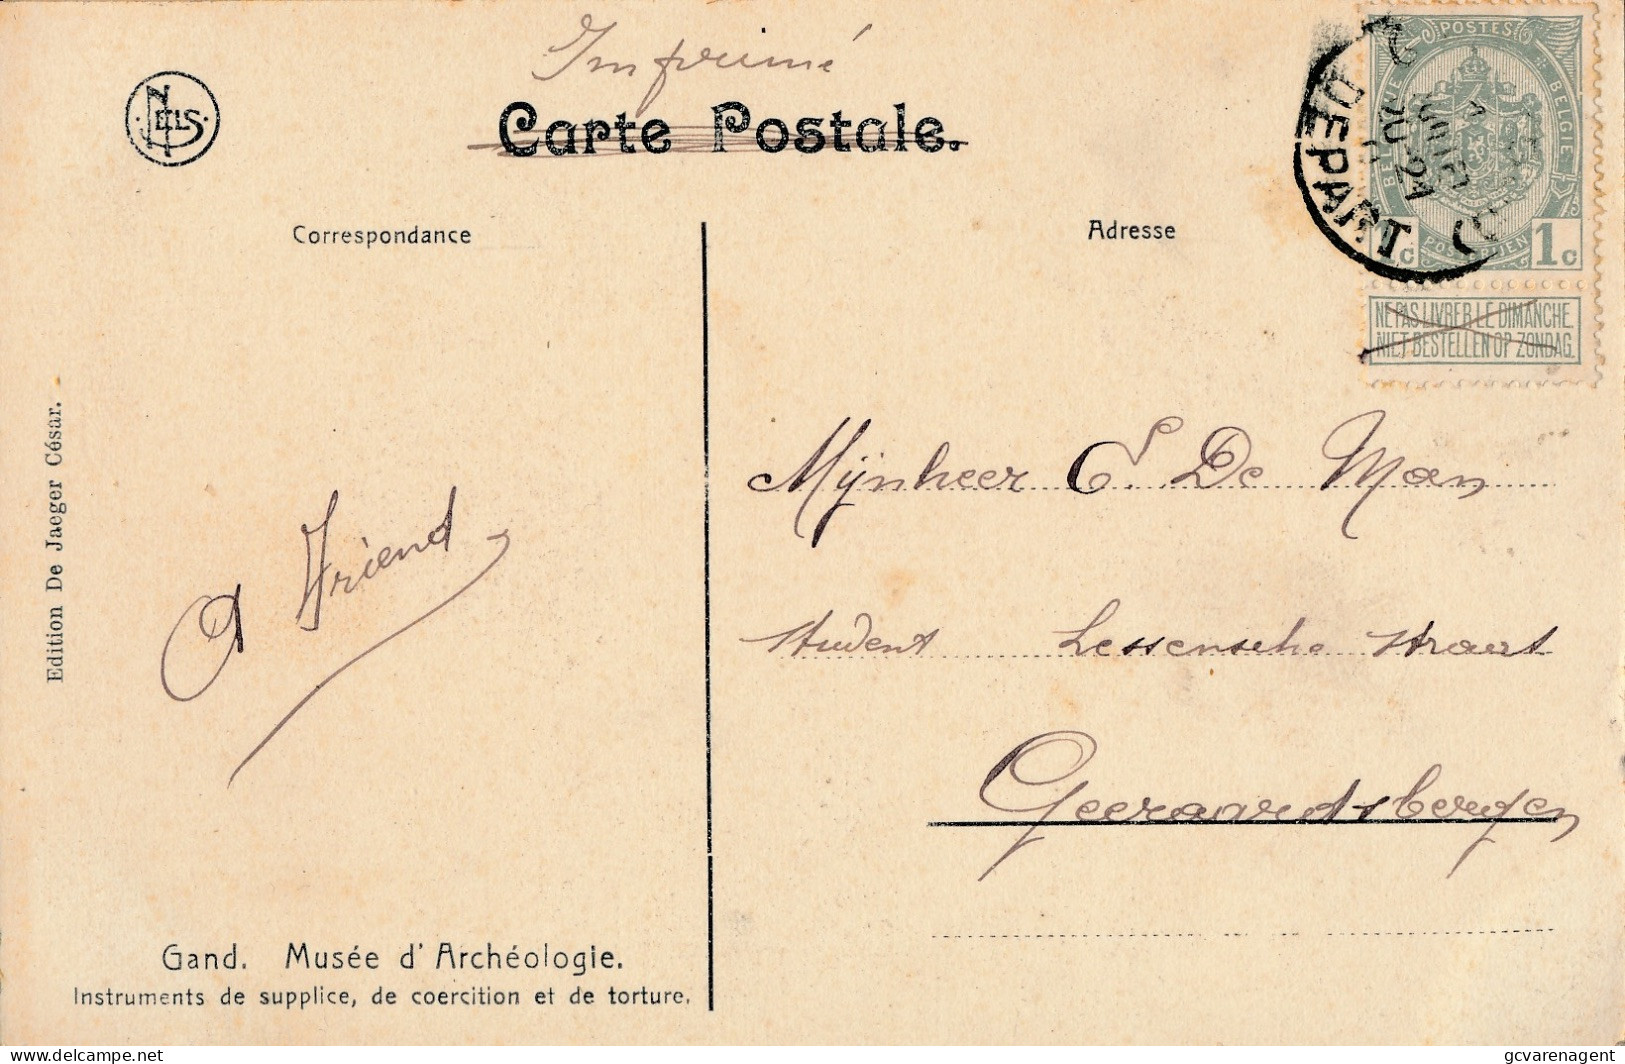 Imprimé
NELS
Carte Postale.
POSTES
BELGIE
1c
POSTERIJEN
1c
DEPART
NE PAS LIVRER LE DIMANCHE.
NIET BESTELLEN OP ZONDAG.
Correspondance
Adresse
Edition De Jaeger César.
Mijnheer C. De Man
Student Lessensche straat
Geeraardsbergen
Vriend
Gand. Musée d'Archéologie.
Instruments de supplice, de coercition et de torture.
delcampe.net
gcvarenagent